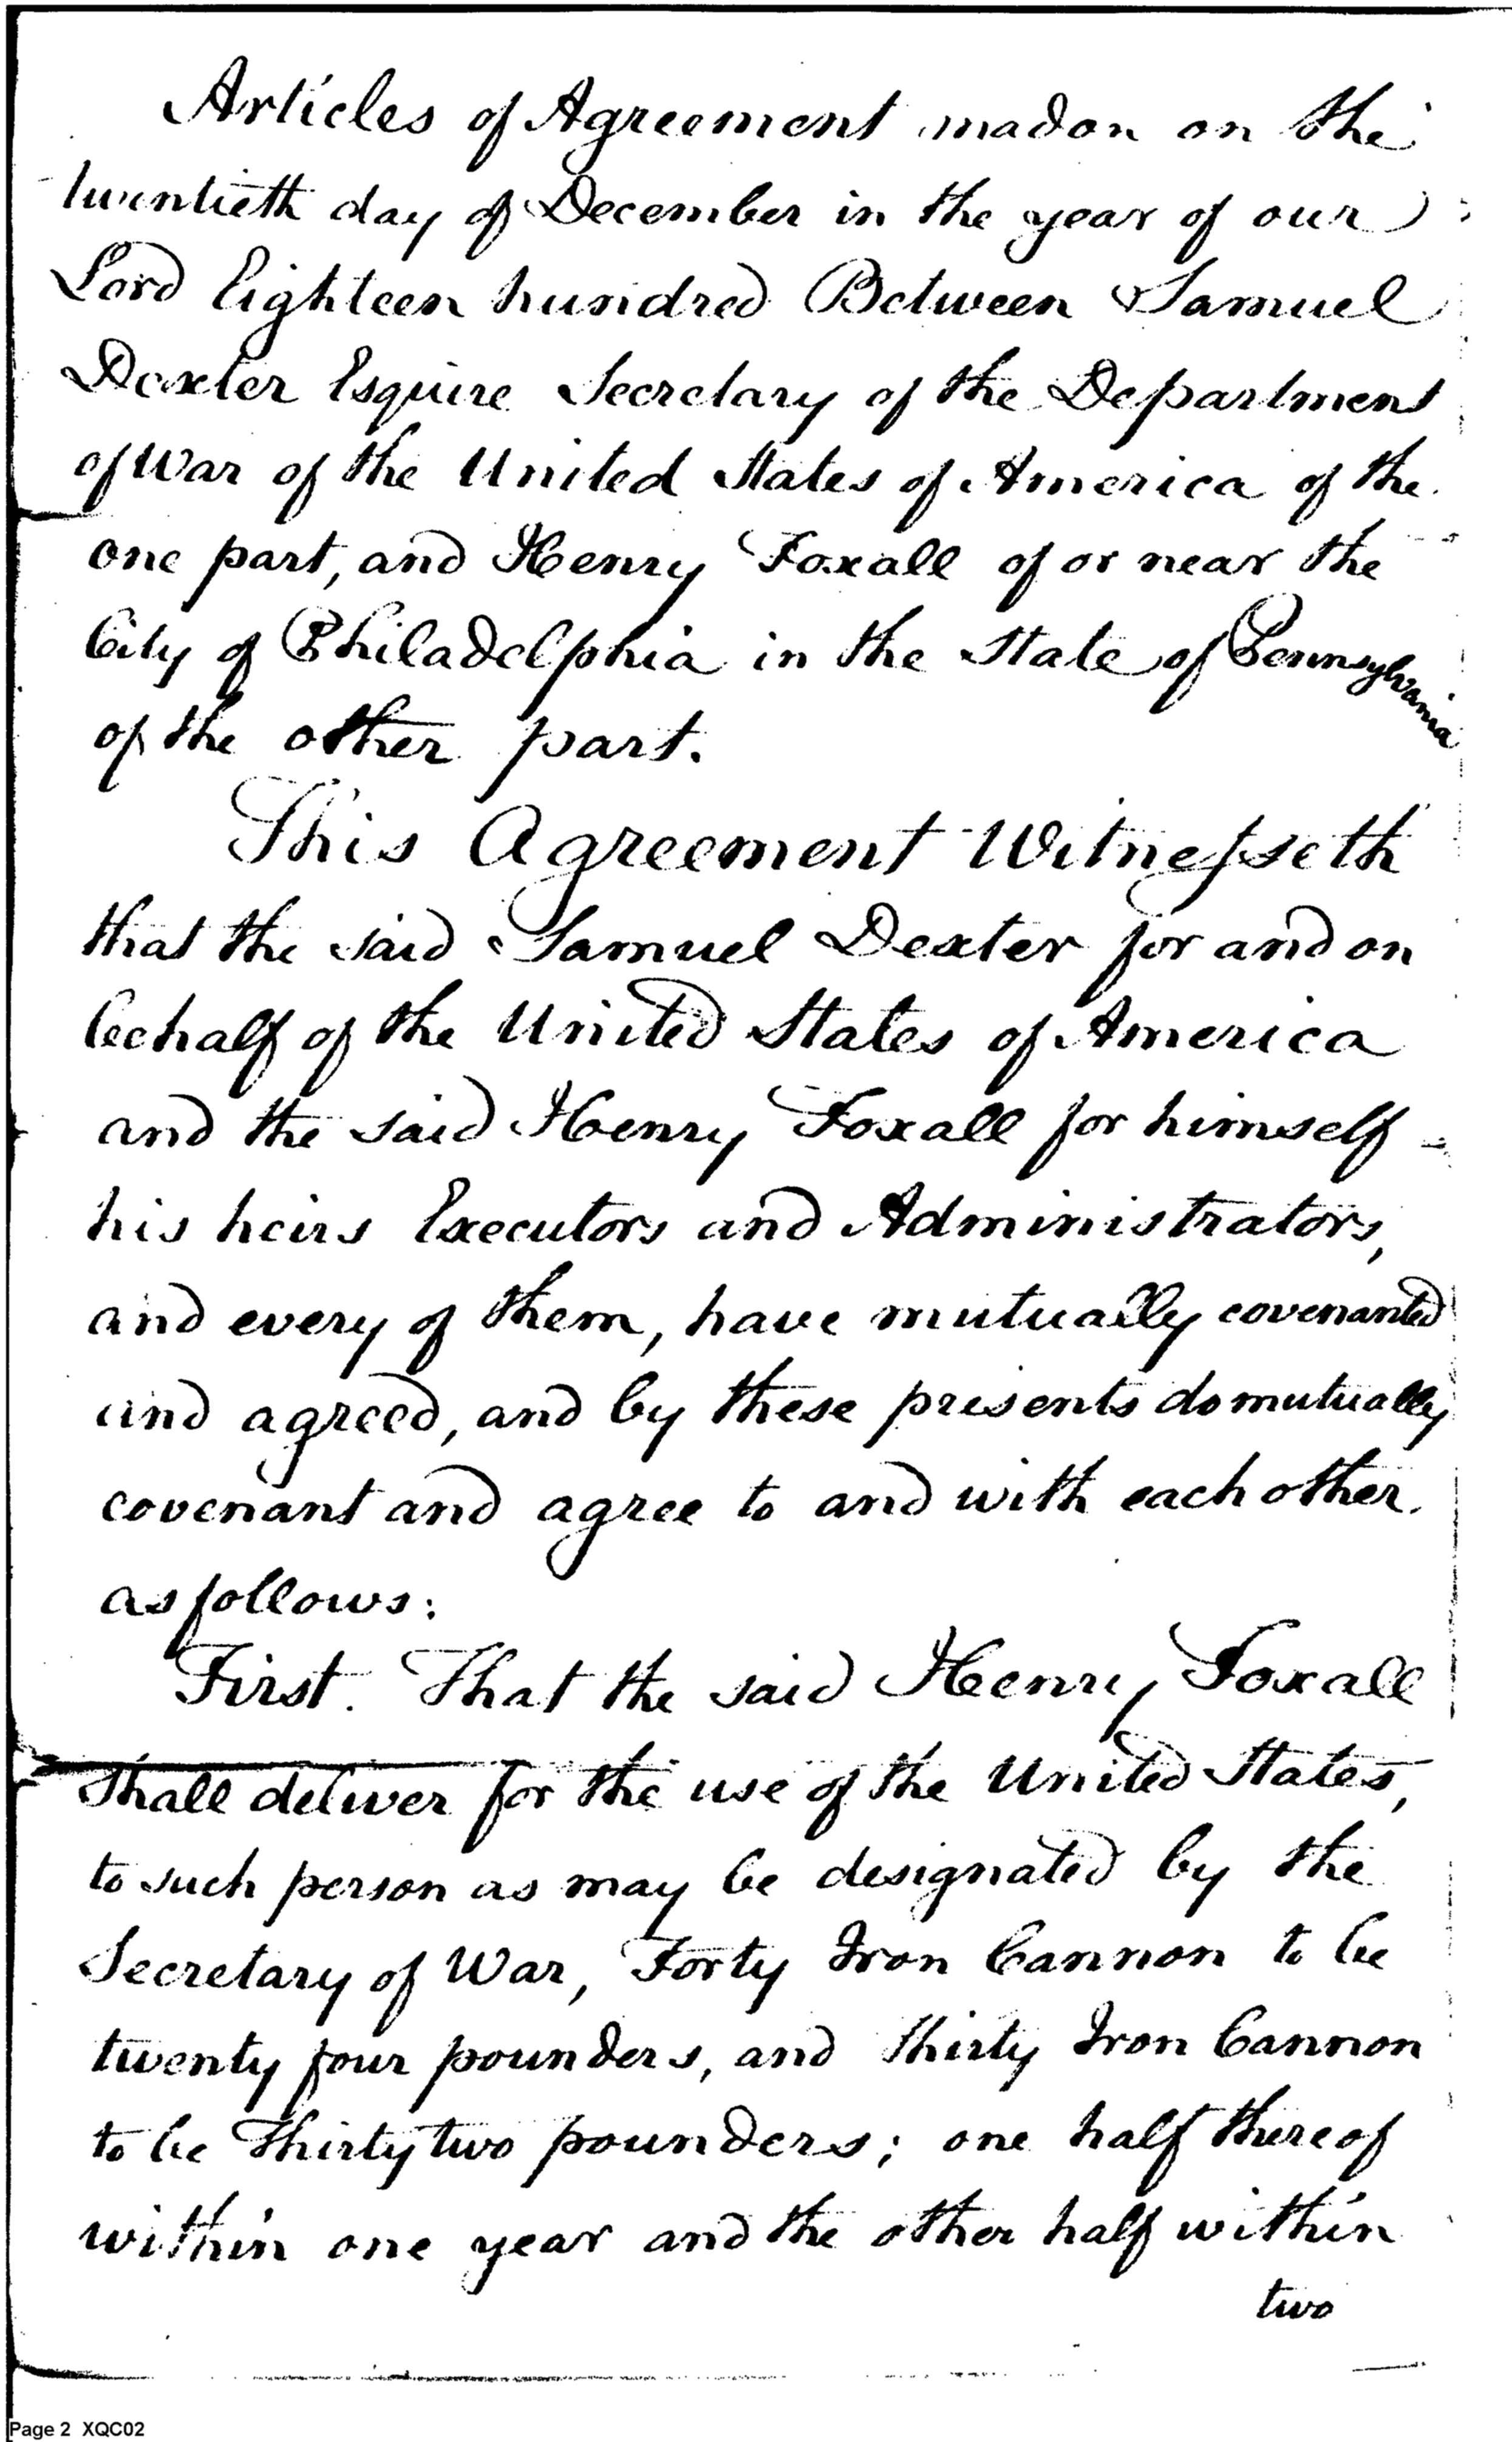 Articles of Agreement madon on the
twentieth day of December in the year of our
Lord Eighteen hundred Between Samuel
Dexter Esquire Secretary of the Department
of War of the United States of America of the
one part, and Henry Foxall of or near the
City of Philadelphia in the State of Pennsylvania
of the other part.
This Agreement Witnesseth
that the said Samuel Dexter for and on
behalf of the United States of America
and the said Henry Foxall for himself
his heirs Executors and Administrators,
and every of them, have mutually covenanted
and agreed, and by these presents do mutually
covenant and agree to and with each other.
as follows:
First. That the said Henry Foxall
shall deliver for the use of the United States,
to such person as may be designated by the
Secretary of War, Forty Iron Cannon to be
twenty four pounders, and thirty Iron Cannon
to be Thirty two pounders; one half thereof
within one year and the other half within
two
Page 2 XQC02